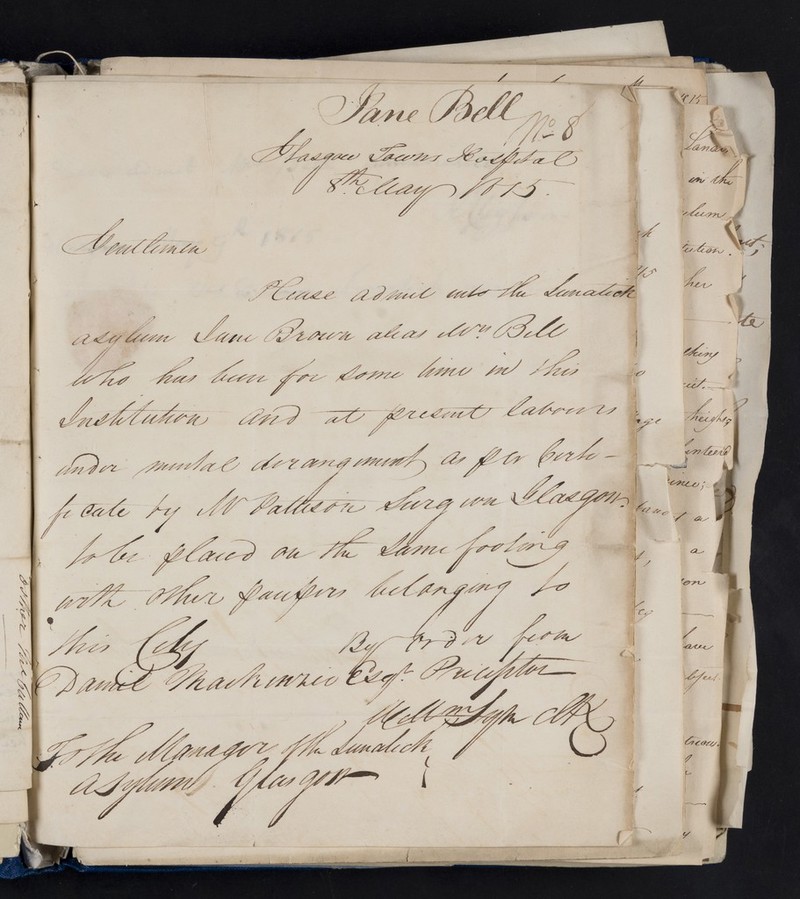 Jane Bell
No 8
Glasgow Towns Hospital
8th May 1815.
Gentlemen
Please admit into the Lunatick
asylum Jane Brown alias Mrs Bell
who has been for some time in this
Institution and at present labours
under mental derangement as per Certi-
ficate by Mr Pattison Surgeon Glasgow.
to be placed on the same footing
with other paupers belonging to
this City By order from
Daniel Mackenzie Esqr. Preceptor
Willm
To the Manager of the Lunatick
Asylum Glasgow
in the
her
a